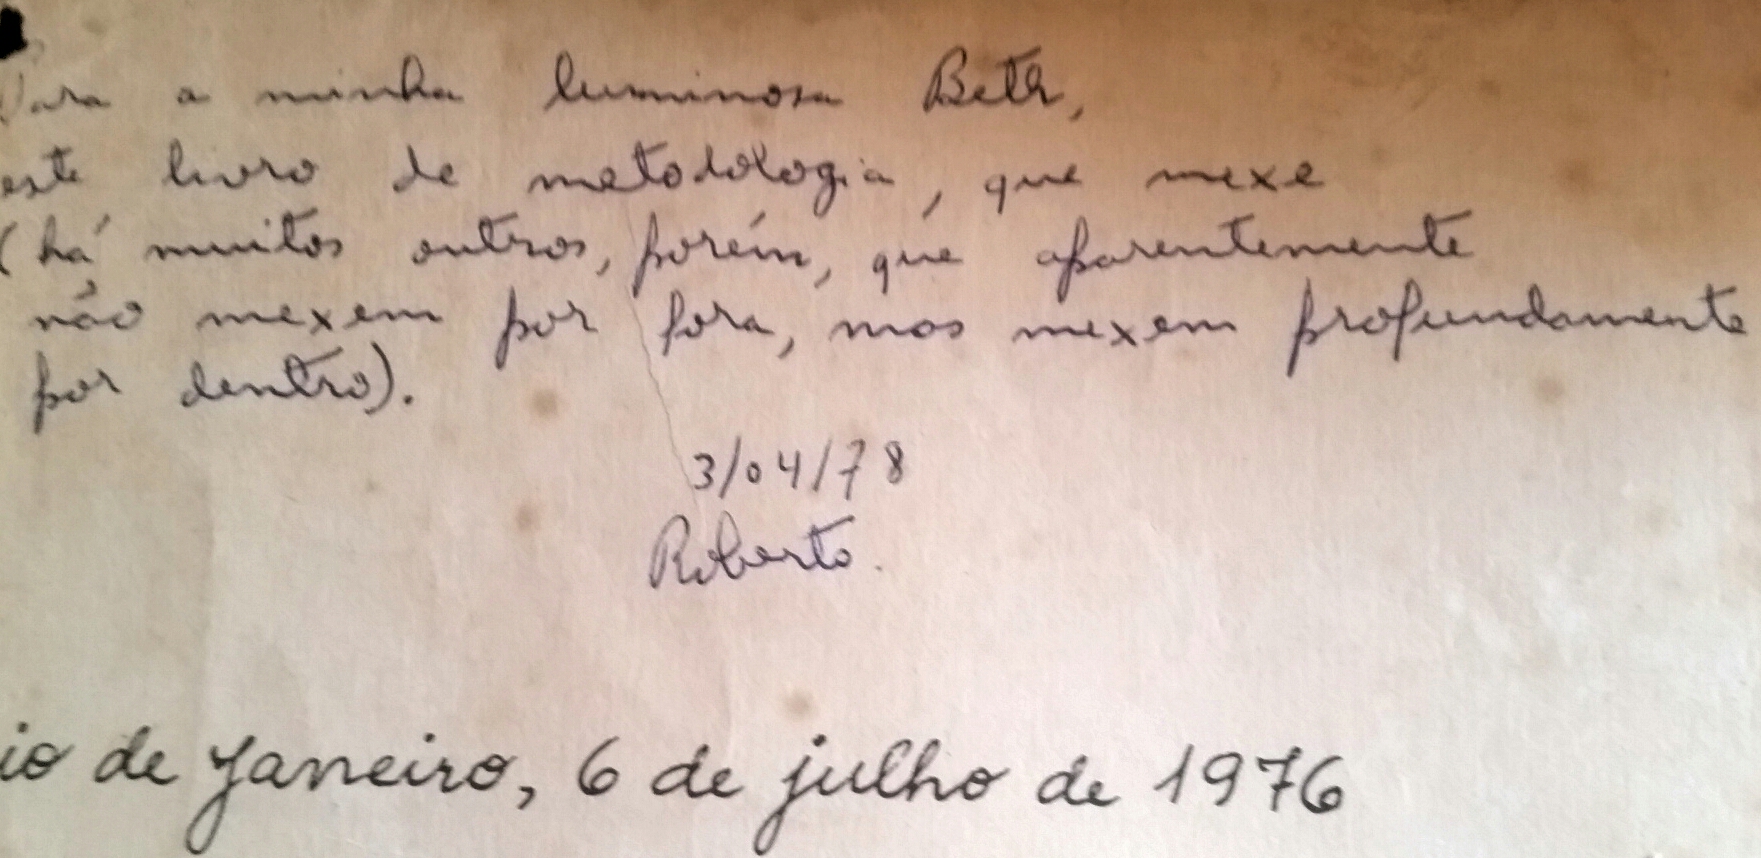 Para a minha luminosa Beth,
este livro de metodologia, que mexe
(há muitos outros, porém, que aparentemente
não mexem por fora, mas mexem profundamente
por dentro).
3/04/78
Roberto.
io de Janeiro, 6 de julho de 1976